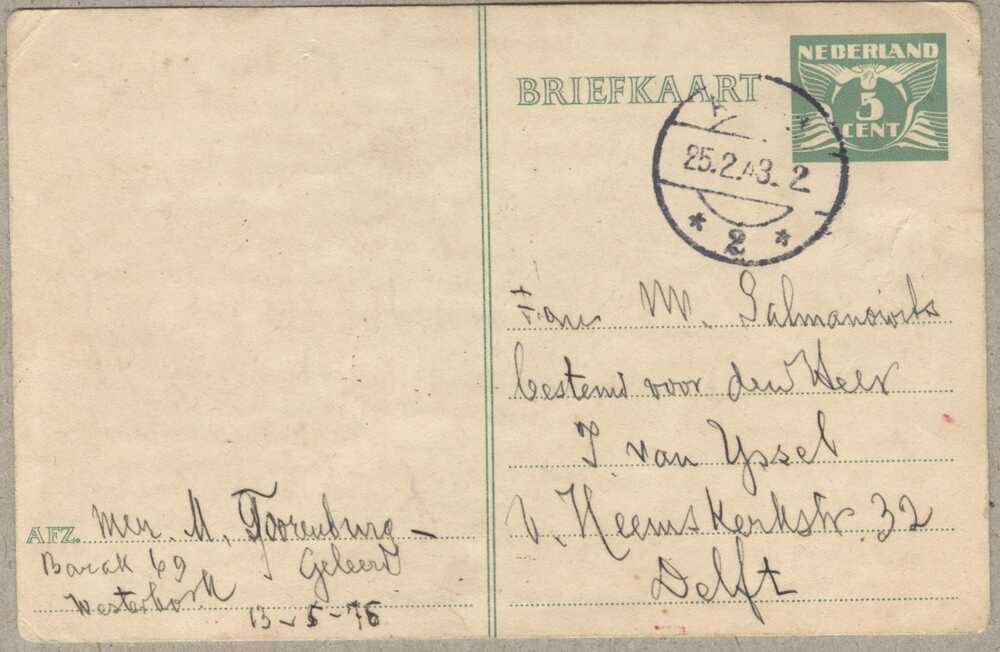 NEDERLAND
5
CENT
BRIEFKAART
25.2.43. 2
* 2 *
W. Salmanowits
bestemd voor den Heer
I. van Yssel
v. Heemskerkstr. 32
Delft
AFZ. Mevr. M.
Barak 69
Westerbork
13-5-76